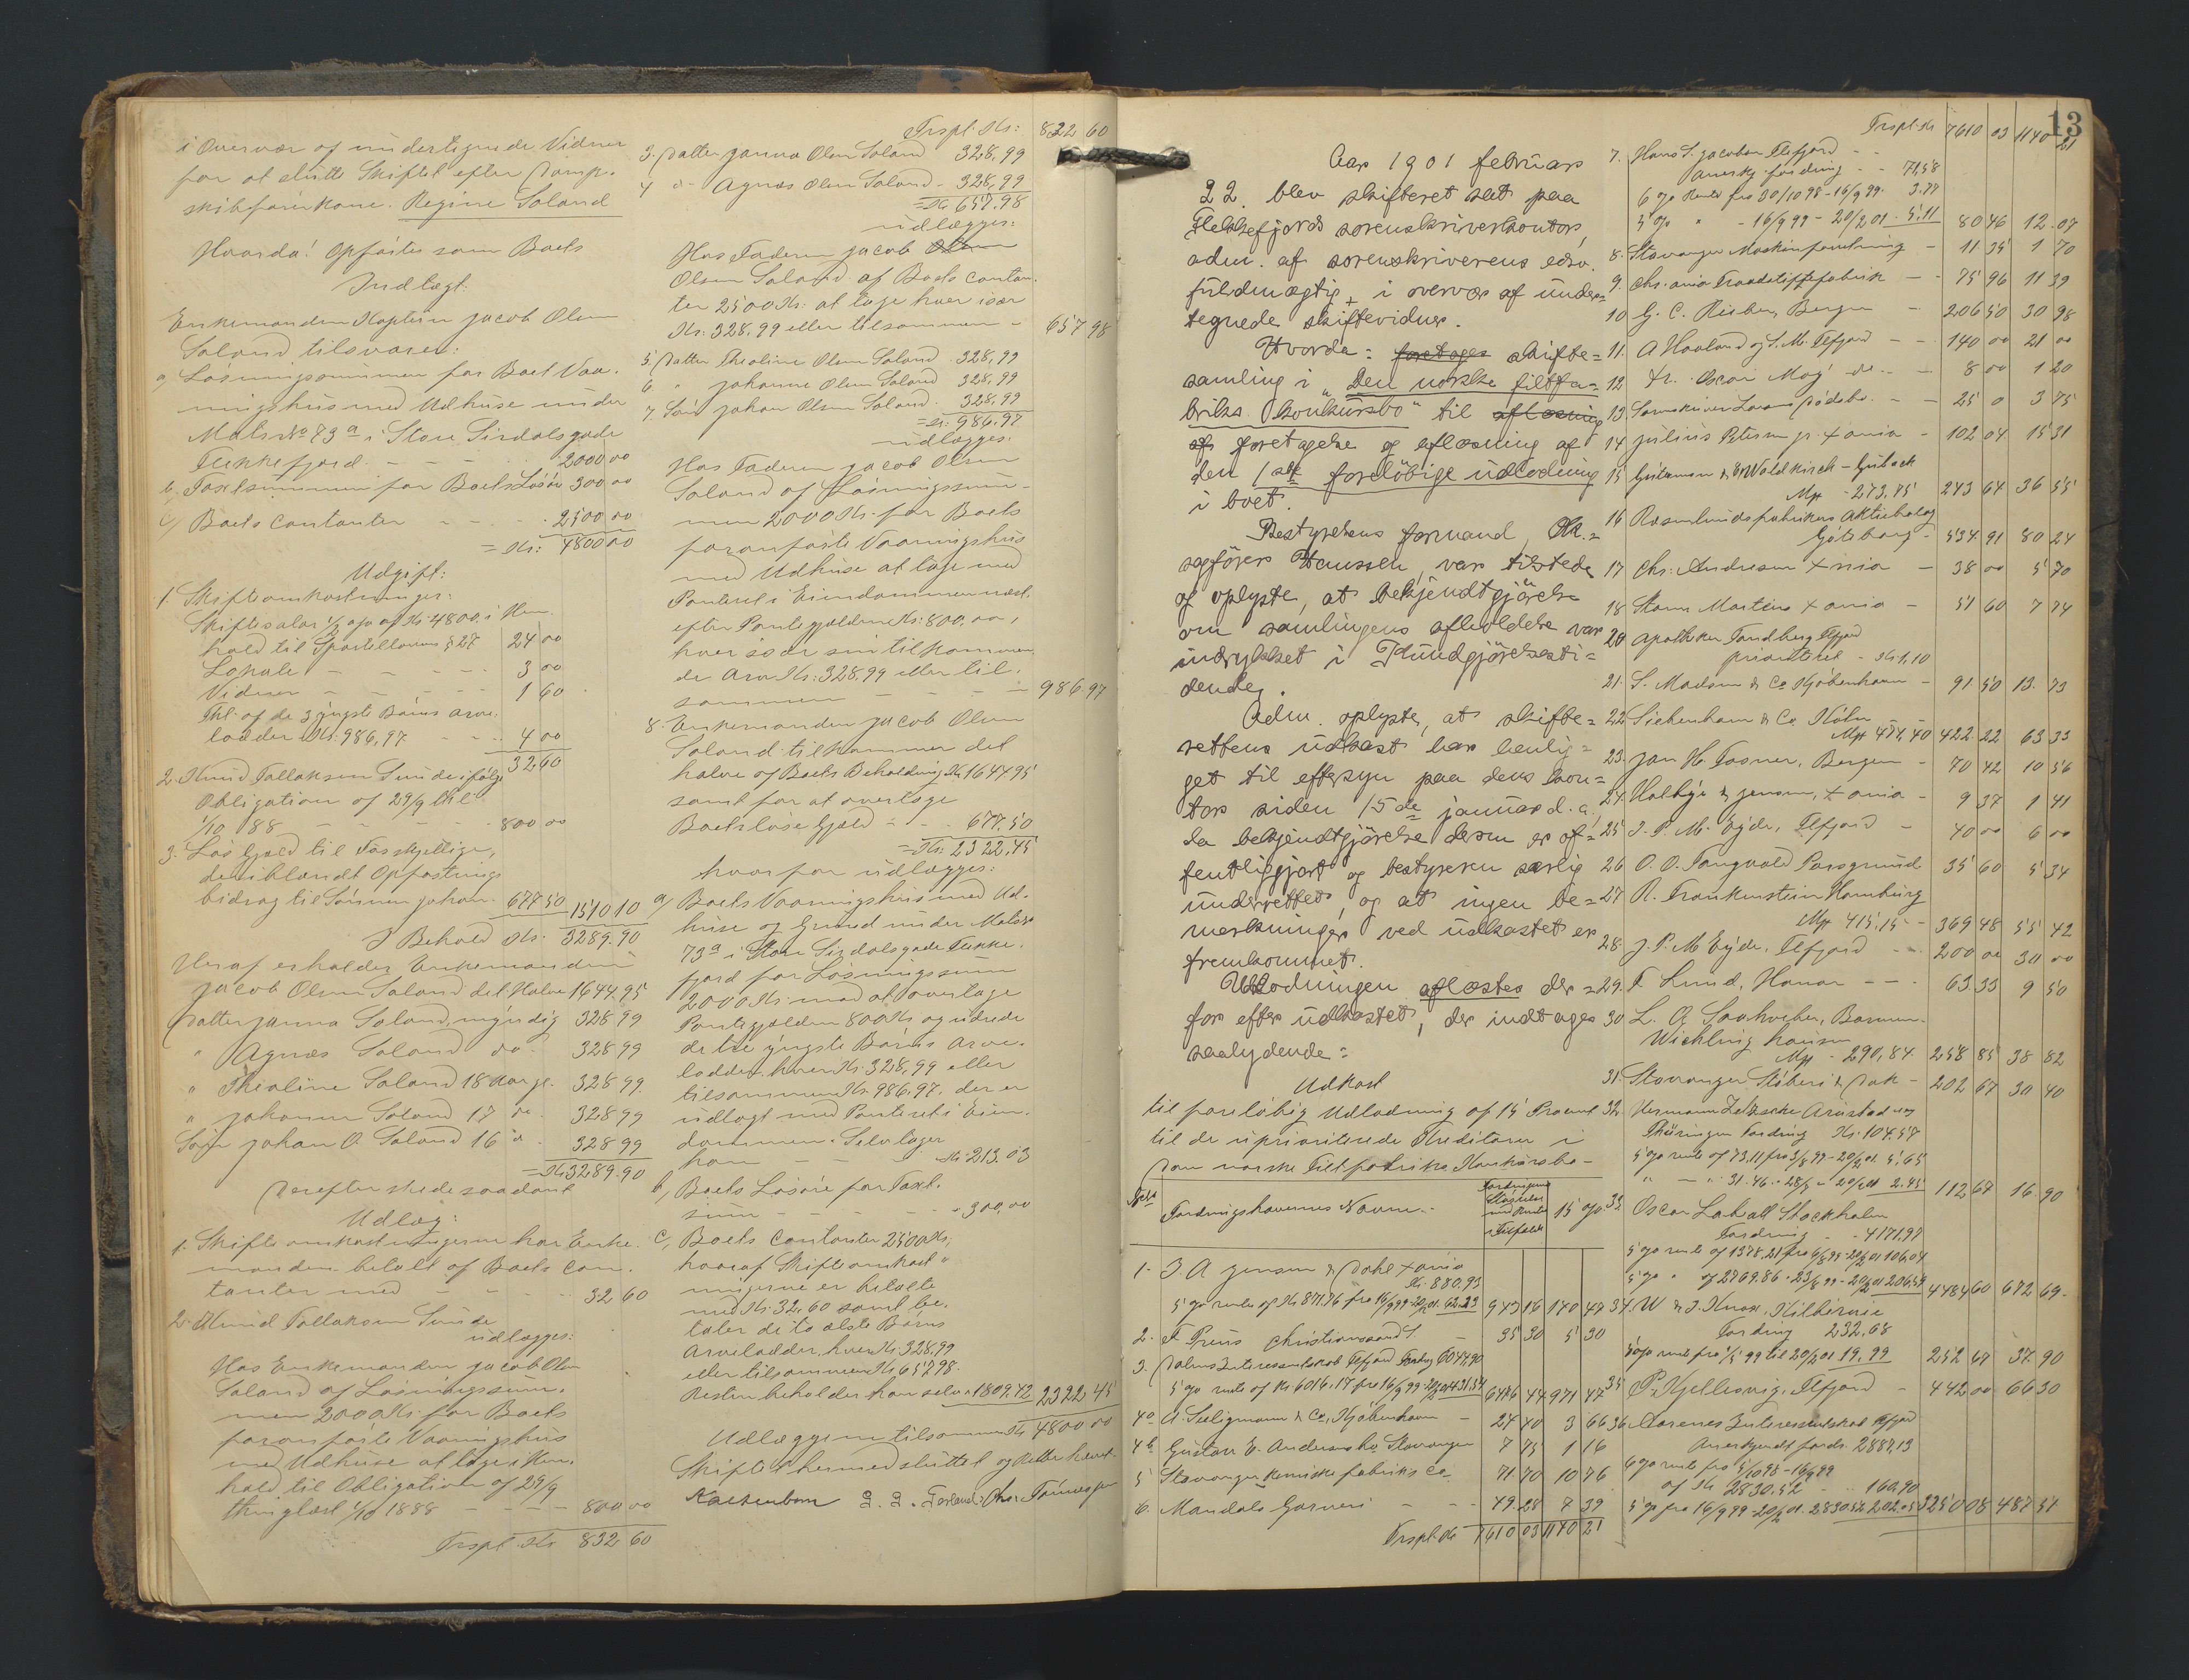 i Overvær af undertegnede Vidner
for at slutte Skiftet efter Damp-
skibsførerkone Regine Soland
Hvorda! Opførtes som Boets
Indtægt:
Enkemanden Kaptein Jacob Olsen
Soland tilsvarer:
a) Løsningssummen for Boets Vaa-
ningshus med Udhuse under
Matr No 73a i Store Sirdalsgade
Flekkefjord - - - 2000 00
b, Taxtsummen for Boets Løsøre 300 00
c, Boets Contanter - - - 2500 00
= Kr: 4800 00
Udgift:
1. Skifteomkostninger:
Skiftesalær 1/2 o/o af Kr: 4800. i Hen-
hold til Sportelloven § 27 24 00
Lokale - - - 3 00
Vidner - - - 1 60
Thl. af de 3 yngste Børns Arve-
lodder Kr. 986,97 - - 4 00
32,60
2. Knud Tollaksen Sunde ifølge
Obligation af 29/9 thl.
1/10 88 - - - 800 00
3. Løs Gjæld til Forskjellige,
deriblandt Opfostrings
bidrag til Sønnen Johan. 677 50 1510 10
I Behold Kr. 3289.90
Heraf erholder Enkemanden
Jacob Olsen Soland det Halve 1644.95
Datter Janna Soland, myndig 328 99
" Agnes Soland do. 328 99
" Theoline Soland 18 Aar gl. 328 99.
" Johanne Soland 17 do. 328 99
Søn Johan O. Soland 16 do. 328 99
= Kr 3289.90
Derefter skede saadant
Udlæg:
1. Skifteomkostningerne har Enke-
manden betalt af Boets Con-
tanter med - - - 32 60
2. Knud Tollaksen Sunde
udlægges:
Hos Enkemanden Jacob Olsen
Soland af Løsningssum-
men 2000 Kr. for Boets
foranførte Vaaningshus
med Udhuse at tage i Hen-
hold til Obligation af 29/9
thinglæst 1/10 1888 - - - 800 00
Trspt. Kr 832 60
Trspt. Kr: 832 60
3. Datter Janna Olsen Soland 328,99
4 do- Agnes Olsen Soland - 328,99
= Kr 657,98
udlægges:
Hos Faderen Jacob Olsen
Olsen Soland af Boets Contan-
ter 2500 Kr: at tage hver især
Kr: 328,99 eller tilsammen - 657 98
5. Datter Theoline Olsen Soland 328,99
6. " Johanne Olsen Soland 328,99
7. Søn Johan Olsen Soland. 328,99
= Kr. 986.97
udlægges:
Hos Faderen Jacob Olsen
Soland af Løsningssum-
men 2000 Kr. for Boets
foranførte Vaaningshus
med Udhuse at tage med
Panteret i Eiendommen næst-
efter Pantegjælden Kr: 800,00,
hver især sin tilkommen-
de Arv Kr: 328,99 eller til-
sammen - - - 986 97
8. Enkemanden Jacob Olsen
Soland tilkommer det
halve af Boets Beholdning Kr 1644 95
samt for at overtage
Boets løse Gjæld - - 677.50
= Kr: 2322,45
hvorfor udlægges:
a) Boets Vaaningshus med Ud-
huse og Grund under Matr No
73a i Store Sirdalsgade Flekke-
fjord for Løsningssum
2000 Kr. mod at overtage
Pantegjælden 800 Kr og udrede
de tre yngste Børns Arve-
lodder, hver Kr. 328,99 eller
tilsammen Kr. 986.97. der er
udlagt med Panteret i Eien-
dommen. Selv tager
han - - - Kr. 213.03
b, Boets Løsøre for Taxt-
sum - - - 300,00
c, Boets Contanter 2500 Kr,
hvoraf Skifteomkost-
ningerne er betalte
med Kr: 32,60 samt be-
taler de to ælste Børns
Arvelodder, hver Kr. 328,99
eller tilsammen Kr 657,98.
Resten beholder han selv: 1809.42 2322 45
Udlæggene tilsammen Kr 4800 00
Skiftet hermed sluttet og Retten hævet.
13
Aar 1901 februar
22. blev skifteret sat paa
Flekkefjords sorenskriverkontor,
adm. af sorenskriverens edsv.
fuldmægtig, i overvær af under-
tegnede skiftevidner.
Hvorda: foretoges skifte-
samling i "Den norske filtfa-
briks konkursbo" til aflæsning
af foretagelse og aflæsning af
den 1ste foreløbige udlodning
i boet.
Bestyrelsens formand, Ok.
sagfører Hanssen, var tilstede
og oplyste, at bekjendtgjørelse
om samlingens afholdelse var
indrykket i Kundgjørelsesti-
dende.
Adm. oplyste, at skifte-
rettens udkast har henlig-
get til eftersyn paa dens kon-
tor siden 15de januar d. a,
da bekjendtgjørelse derom er of-
fentliggjort og bestyreren særlig
underrettet, og at ingen be-
mærkninger ved udkastet er
fremkommet.
Udlodningen aflæstes der-
for efter udkastet, der indtages
saalydende:
Udkast
til foreløbig Udlodning af 15 Procent
til de uprioriterede Kreditorer i
Den norske Filtfabriks Konkursbo -
Fordringshavernes Navne. - 15 o/o
1. I A Jensen & Dahl Xania
Kr. 880,93
5 o/o rente af Kr 871.76 fra 16/9 99-20/2 01. 62.23 943 16 140 47
2. F. Preus Christianssand S. - 35 30 5 30
3. Dalens Interessentskab Flfjord Fordrg 6044,90
5 o/o rente af Kr 6016.17 fra 16/9 99-20/2 01 431,54 6476 44 971 47
4a A. Seeligmann & Co, Kjøbenhavn - 24 40 3 66
4b Gustav E. Andersen & Co Stavanger 7 75 1 16
5 Stavanger kemiske fabriks Co. 71 70 10 76
6. Mandals Garveri - - - 49 28 7 39
Trspt. Kr 7610 03 1140 21
Trspt Kr 7610 03 1140 21
7. Hans S. Jacobsen Flefjord - -
Anerkj. fordring - - 71,58
6 o/o Rente fra 30/10 98-16/9 99. 3.77
5 o/o " - 16/9 99-20/2 01. 5.11 80 46 12.07
8. Stavanger Maskinforretning - 11 35 1 70
9. Chr.ania Traadstiftfabrik - - 75 96 11 39
10 G. C. Rieber, Bergen - 206 50 30 98
11. A Haaland og S. M. Flfjord - - 140 00 21 00
12 8 00 1 20
13 25 0 3 75
14 Julius Petersen jr. Xania - 102 04 15 31
15 Gütermann & Co Waldkirch - Gutach
Mk - 273.75 243 64 36 55
16 Rosenlundsfabrikers Aktiebolag
Göteborg - 534 91 80 24
17 Chr. Andresen Xania - 38 00 5 70
18 Martens Xania - 51 60 7 74
20 Apotheker Tandberg Flfjord
prioriteret - Kr 1,10
21. S. Madsen & Co Kjøbenhavn - 91 50 13. 73
22 & Co Köln
Mk 474,40 422 22 63 33
23. Jan H. Fasmer, Bergen - 70 42 10 56
24. Halbye & Jensen, Xania - 9 37 1 41
25 J. P. M. Eyde, Flfjord - 40 00 6 00
26 O. O. Tangvald Porsgrund 35 60 5 34
27 R. Frankenstein Hamburg
Mk 415,15 - 369 48 55 42
28. J. P. M Eyde, Flfjord - - 200 00 30 00
29. F Lund, Hanar - - 63 33 9 50
30 L. A. Barmen-
Wichlinghausen
Mk - 290,84. 258 85 38 82
31. Stavanger Støberi & Dok - 202 67 30 40
32. Hermann Arnstadt
Thüringen Fordring Kr. 104.57
5 o/o rente af 73.11 fra 3/8 99-20/2 01. 5,65
" - " - 31.46 - 28/7 - 20/2 01 2.45 112 67 16.90
33 Oscar Stockholm
Fordring - - 4171,97
5 o/o rente af 1378.21 fra 6/8 99-20/2 01 106,04
5 o/o " af 2769.86 - 23/8 99-20/2 01 206.59 4484 60 672 69.
34. W & J. Knox, Kilbirnie
Fording 232,68
5 o/o rente fra 1/5 99 til 20/2 01 19,99 252 67 37.90
35 P. Kjellesvig, Flfjord - 442 00 66 30
36. Interessentskab Flfjord
Anerkjendt fordr. 2887,13
6 o/o rente fra 5/10 98-16/9 99
af Kr 2830.52 - - 160,90
5 o/o fra 16/9 99-20/2 01. 2830.52 202.05 3250 08 487 51